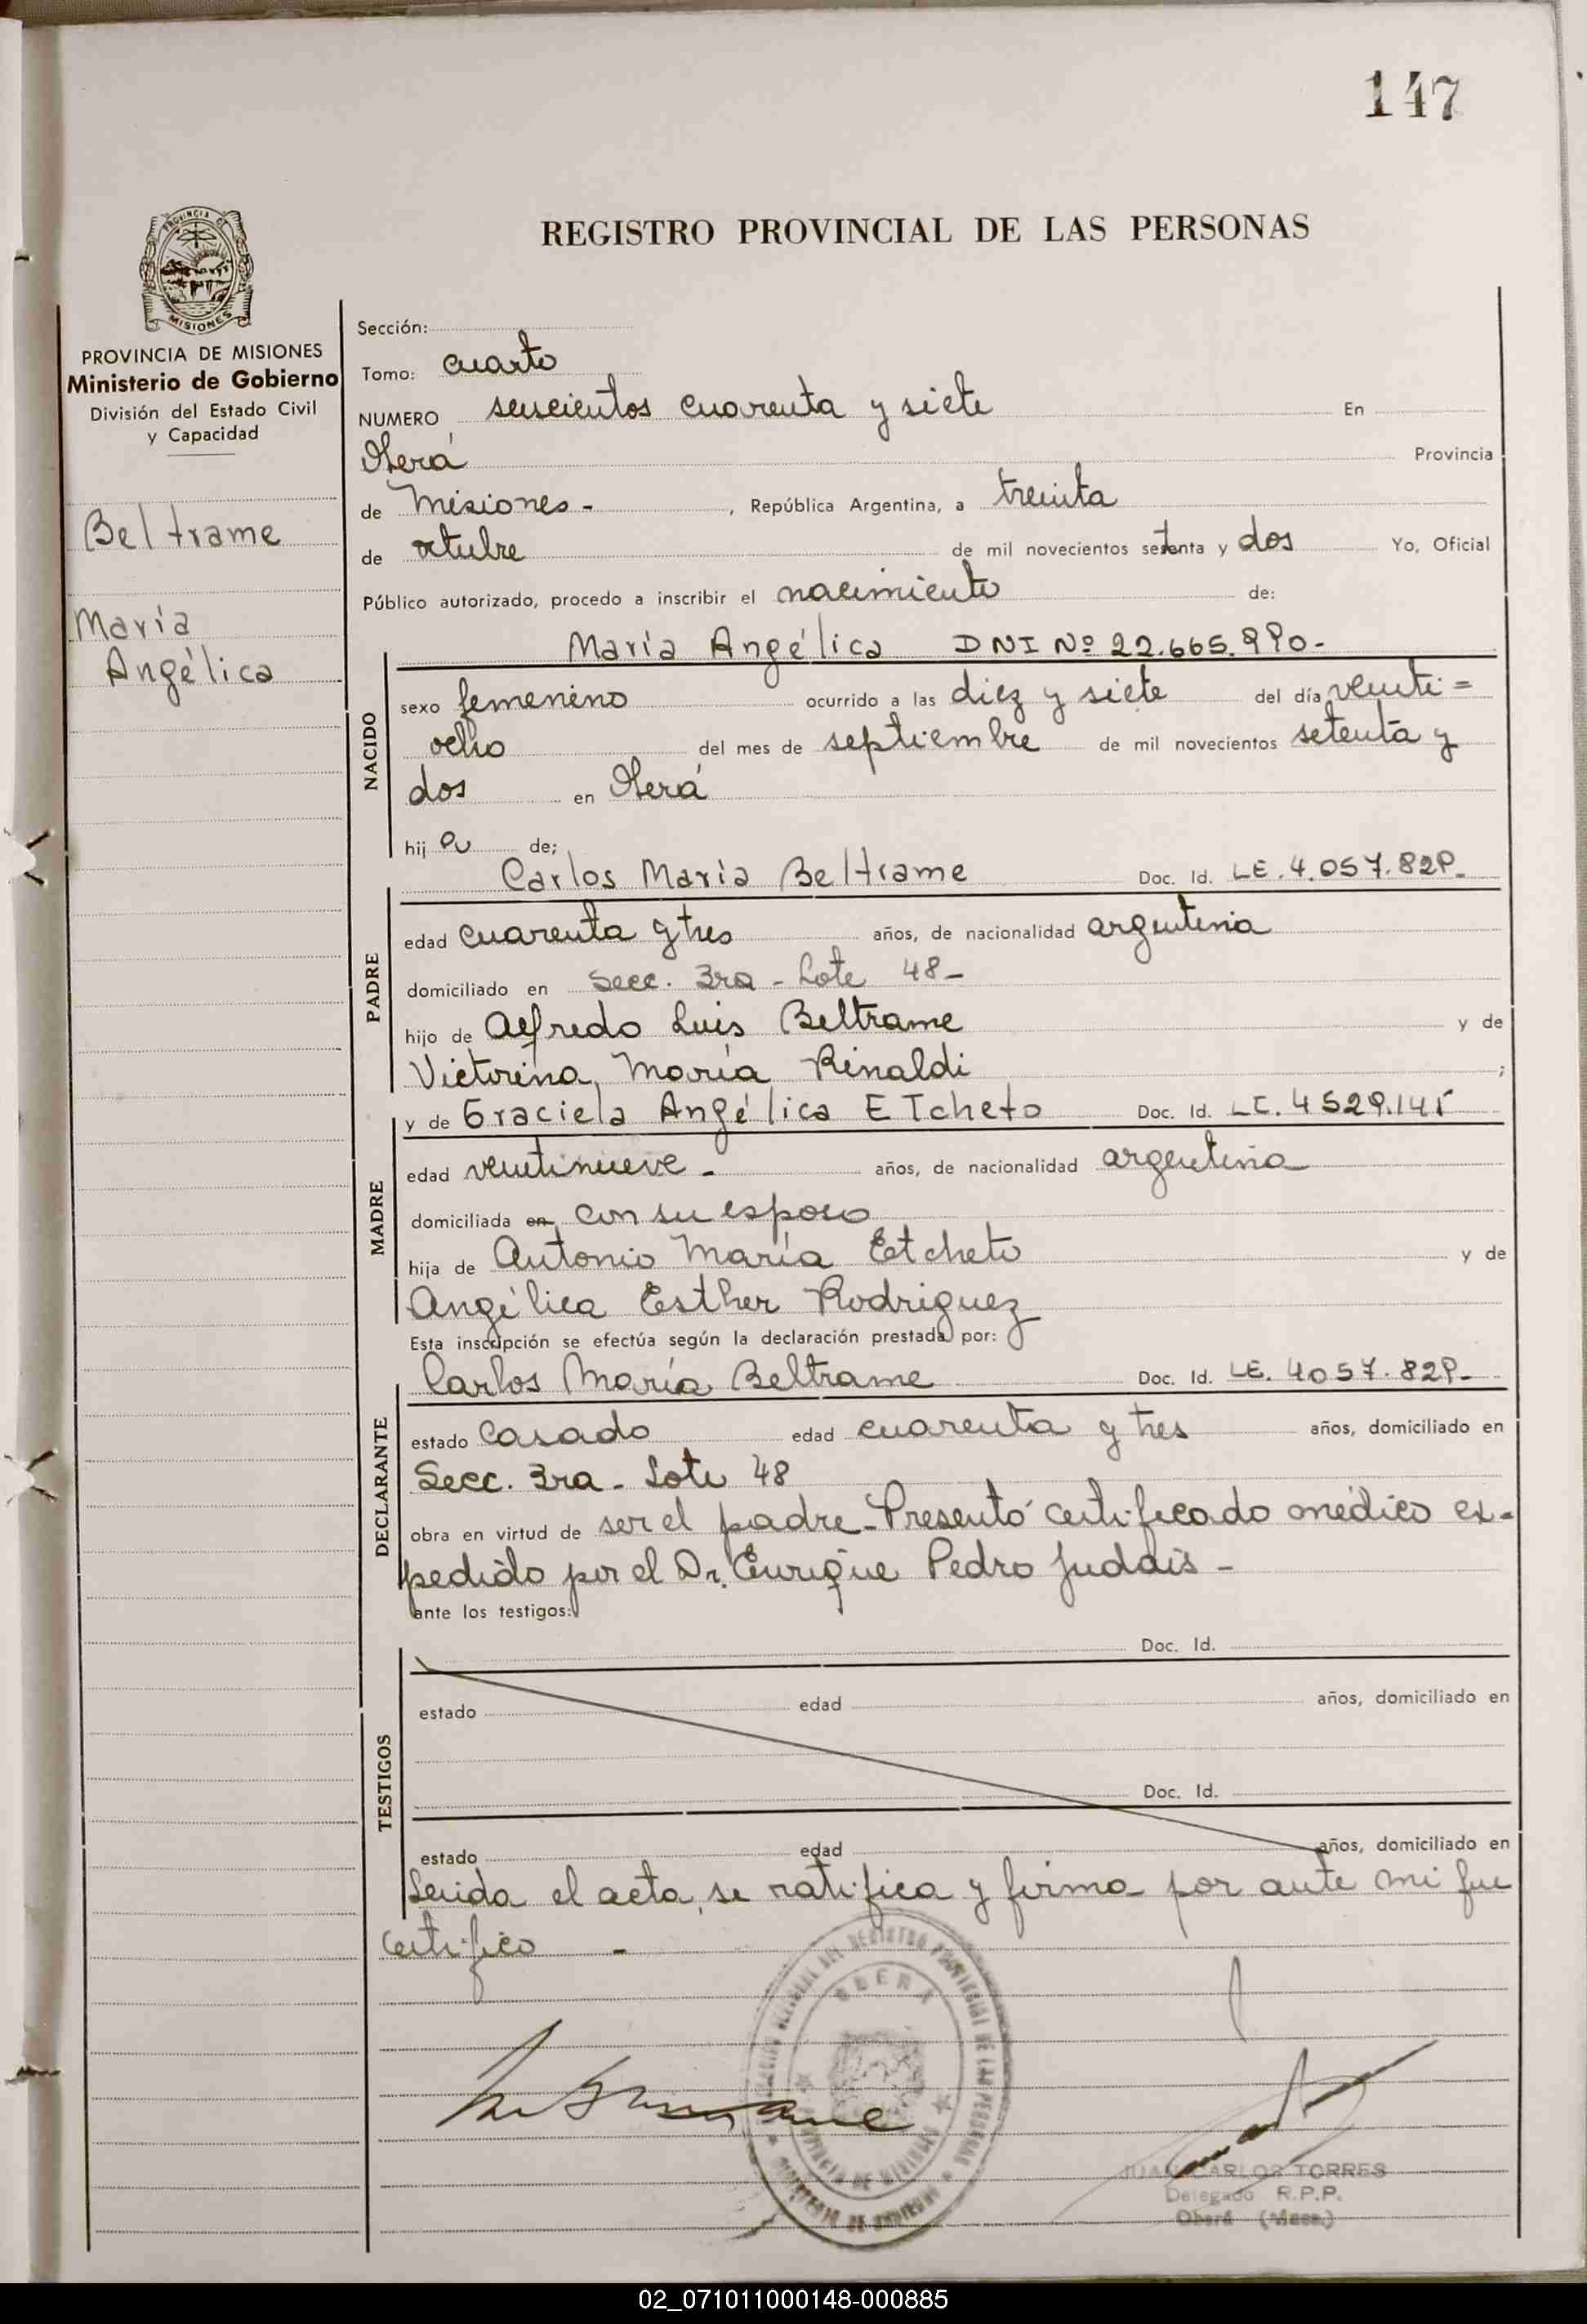 147
REGISTRO PROVINCIAL DE LAS PERSONAS
PROVINCIA DE MISIONES
Ministerio de Gobierno
División del Estado Civil
y Capacidad
Beltrame
María
Angélica
Sección:
Tomo: cuarto
NUMERO seiscientos cuarenta y siete En
Oberá Provincia
de Misiones - , República Argentina, a treinta
de octubre de mil novecientos setenta y dos Yo, Oficial
Público autorizado, procedo a inscribir el nacimiento de:
NACIDO
María Angélica DNI Nº 22.665.990.-
sexo femenino ocurrido a las diez y siete del día veinti=
ocho del mes de septiembre de mil novecientos setenta y
dos en Oberá
hija de;
PADRE
Carlos María Beltrame Doc. Id. LE. 4.057.829.-
edad cuarenta y tres años, de nacionalidad argentina
domiciliado en Secc. 3ra - Lote 48-
hijo de Alfredo Luis Beltrame y de
Victorina María Rinaldi ;
MADRE
y de Graciela Angélica Etcheto Doc. Id. LC. 4529.145
edad veintinueve - años, de nacionalidad argentina
domiciliada en con su esposo
hija de Antonio María Etcheto y de
Angélica Esther Rodriguez
Esta inscripción se efectúa según la declaración prestada por:
DECLARANTE
Carlos María Beltrame Doc. Id. LE. 4057.829.-
estado casado edad cuarenta y tres años, domiciliado en
Secc. 3ra - Lote 48
obra en virtud de ser el padre - Presentó certificado médico ex-
pedido por el Dr. Enrique Pedro Judais -
ante los testigos:
TESTIGOS
Doc. Id.
estado edad años, domiciliado en
Doc. Id.
estado edad años, domiciliado en
Leida el acta, se ratifica y firma por ante mi que
certifico -
OBERA
JUAN CARLOS TORRES
Delegado R.P.P.
Oberá (Mnes.)
02_071011000148-000885